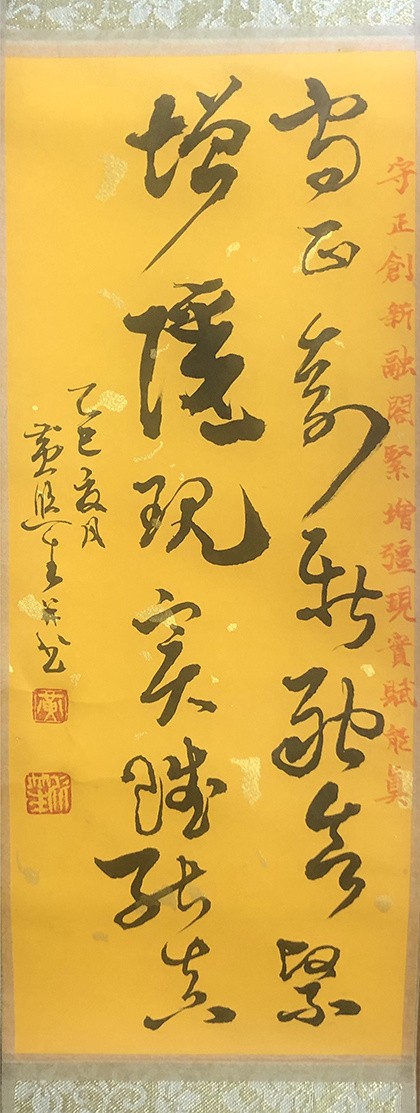 守正創新融閤緊增彊現實賦能真
守正創新融合緊
增彊現實賦能真
乙巳夏月
黃